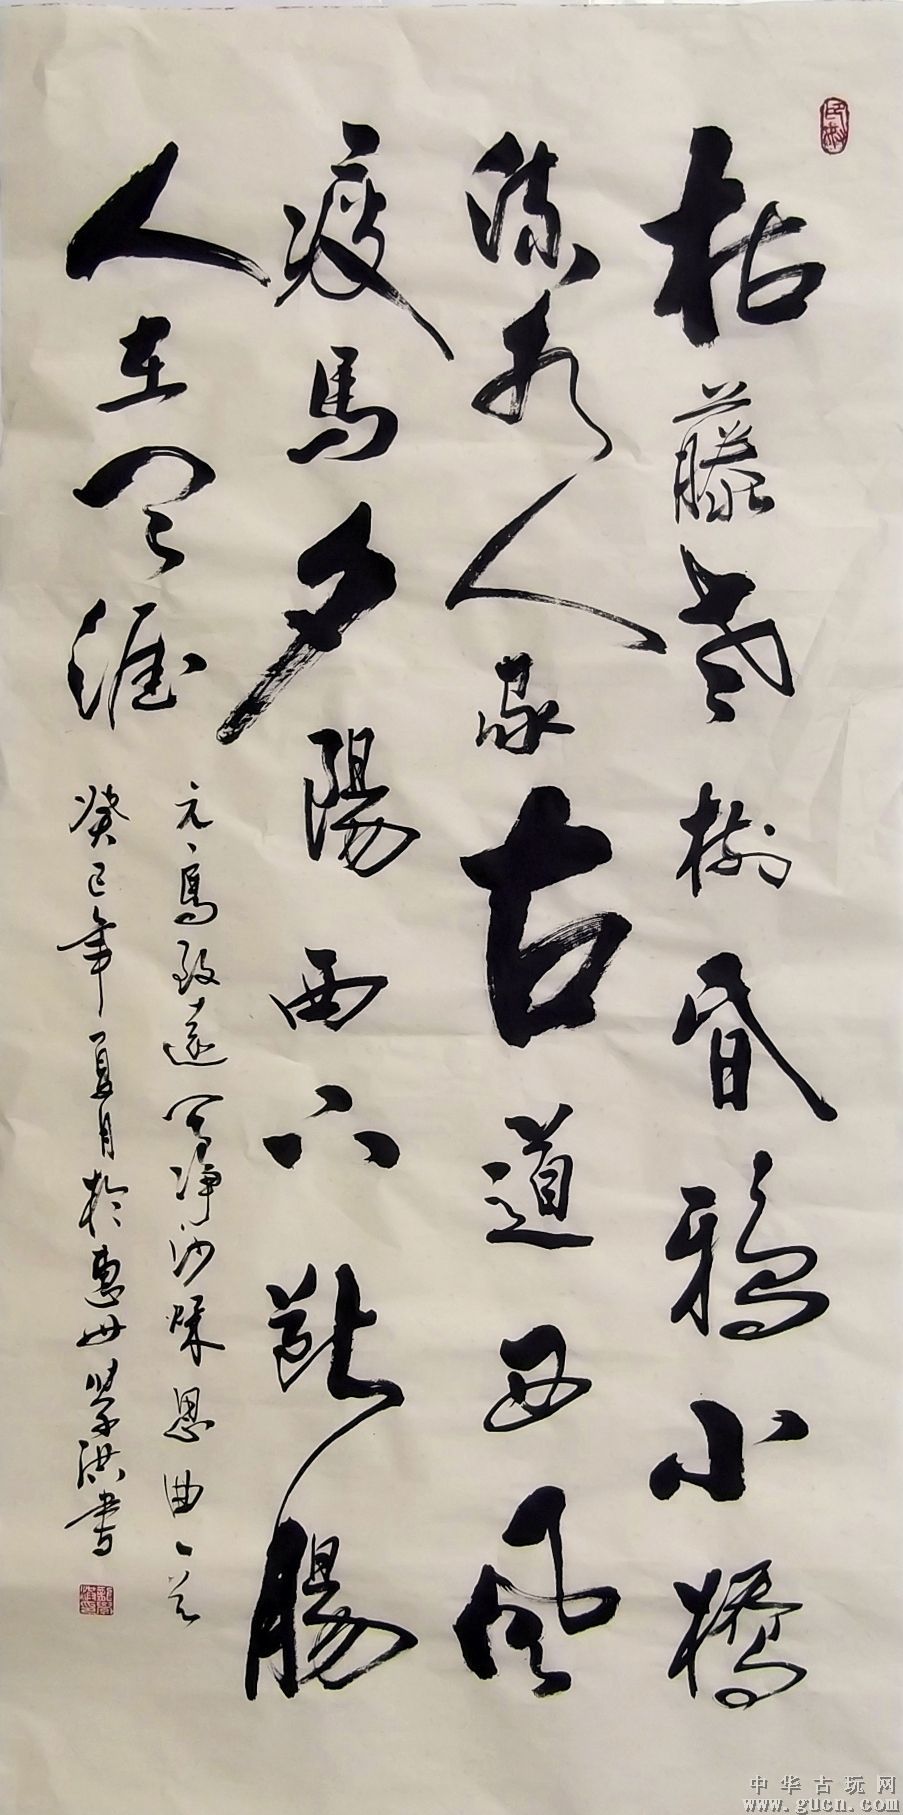 枯藤老樹昏鴉小橋
流水人家古道西風
瘦馬夕陽西下斷腸
人在天涯
元、馬致遠天淨沙秋思曲一首
癸巳年夏月於惠州學洪書
中华古玩网
www.gucn.com